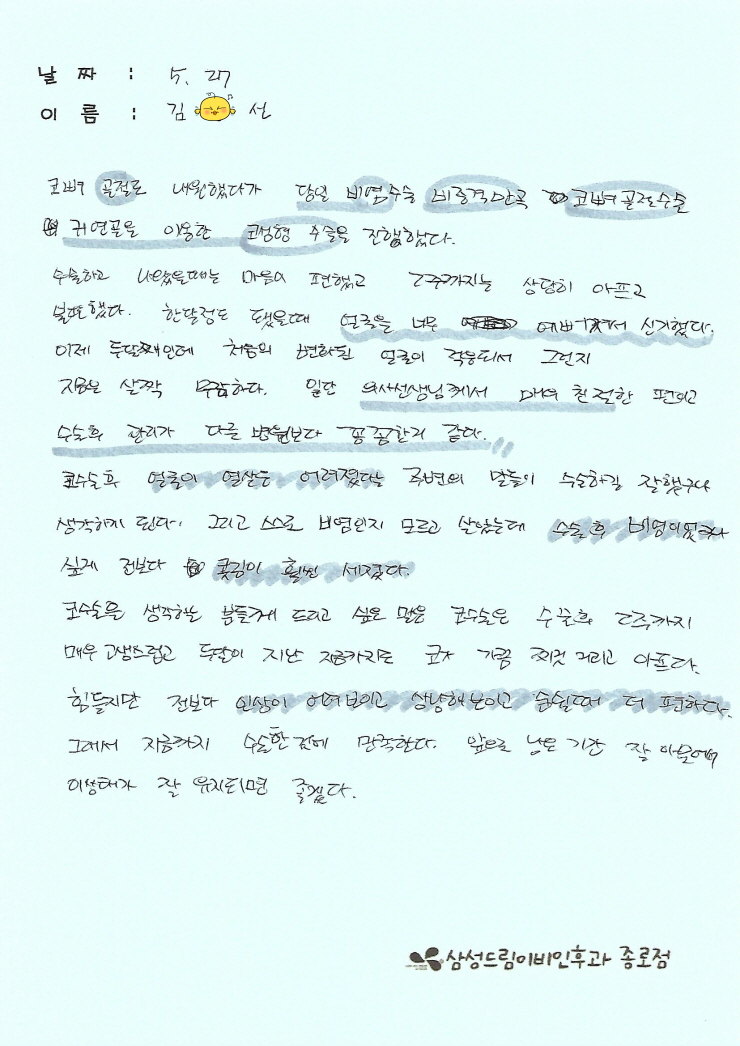 날 짜 : 5. 27
이 름 : 김 선
코뼈 골절로 내원했다가 당일 비염수술 비중격만곡 코뼈골절수술
귀연골을 이용한 코성형 수술을 진행했다.
수술하고 나왔을때는 마음이 편했고 2주까지는 상당히 아프고
불편했다. 한달정도 됐을때 얼굴을 너무 예뻐져서 신기했다.
이제 두달째인데 처음의 변화된 얼굴이 적응되서 그런지
지금은 살짝 무감하다. 일단 의사선생님께서 매우 친절한 편이고
수술후 관리가 다른 병원보다 꼼꼼한거 같다.
코수술후 얼굴이 열살은 어려졌다는 주변의 말들이 수술하길 잘했구나
생각하게 된다. 그리고 스스로 비염인지 모르고 살았는데 수술 후 비염이었구나
싶게 전보다 콧김이 훨씬 세졌다.
코수술을 생각하는 분들께 드리고 싶은 말은 코수술은 수술후 2주까지
매우 고생스럽고 두달이 지난 지금까지도 코가 가끔 찌릿 거리고 아프다.
힘들지만 전보다 인상이 어려보이고 상냥해보이고 숨쉴때 더 편하다.
그래서 지금까지 수술한것에 만족한다. 앞으로 남은 기간 잘 아물어
이상태가 잘 유지되면 좋겠다.
삼성드림이비인후과 종로점